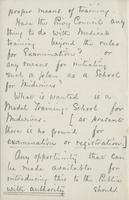 proper means of training
Have the Privy Council any
thing to do with Medical
Training beyond the rules
for Examination? or
any means for initiating
such a plan as a School
for Midwives?
What is wanted is a
Model Training-School for
Midwives. [at present
there is no ground for
examination or registration.]
Any opportunity that can
be made available for
introducing this to the Public
with authority should